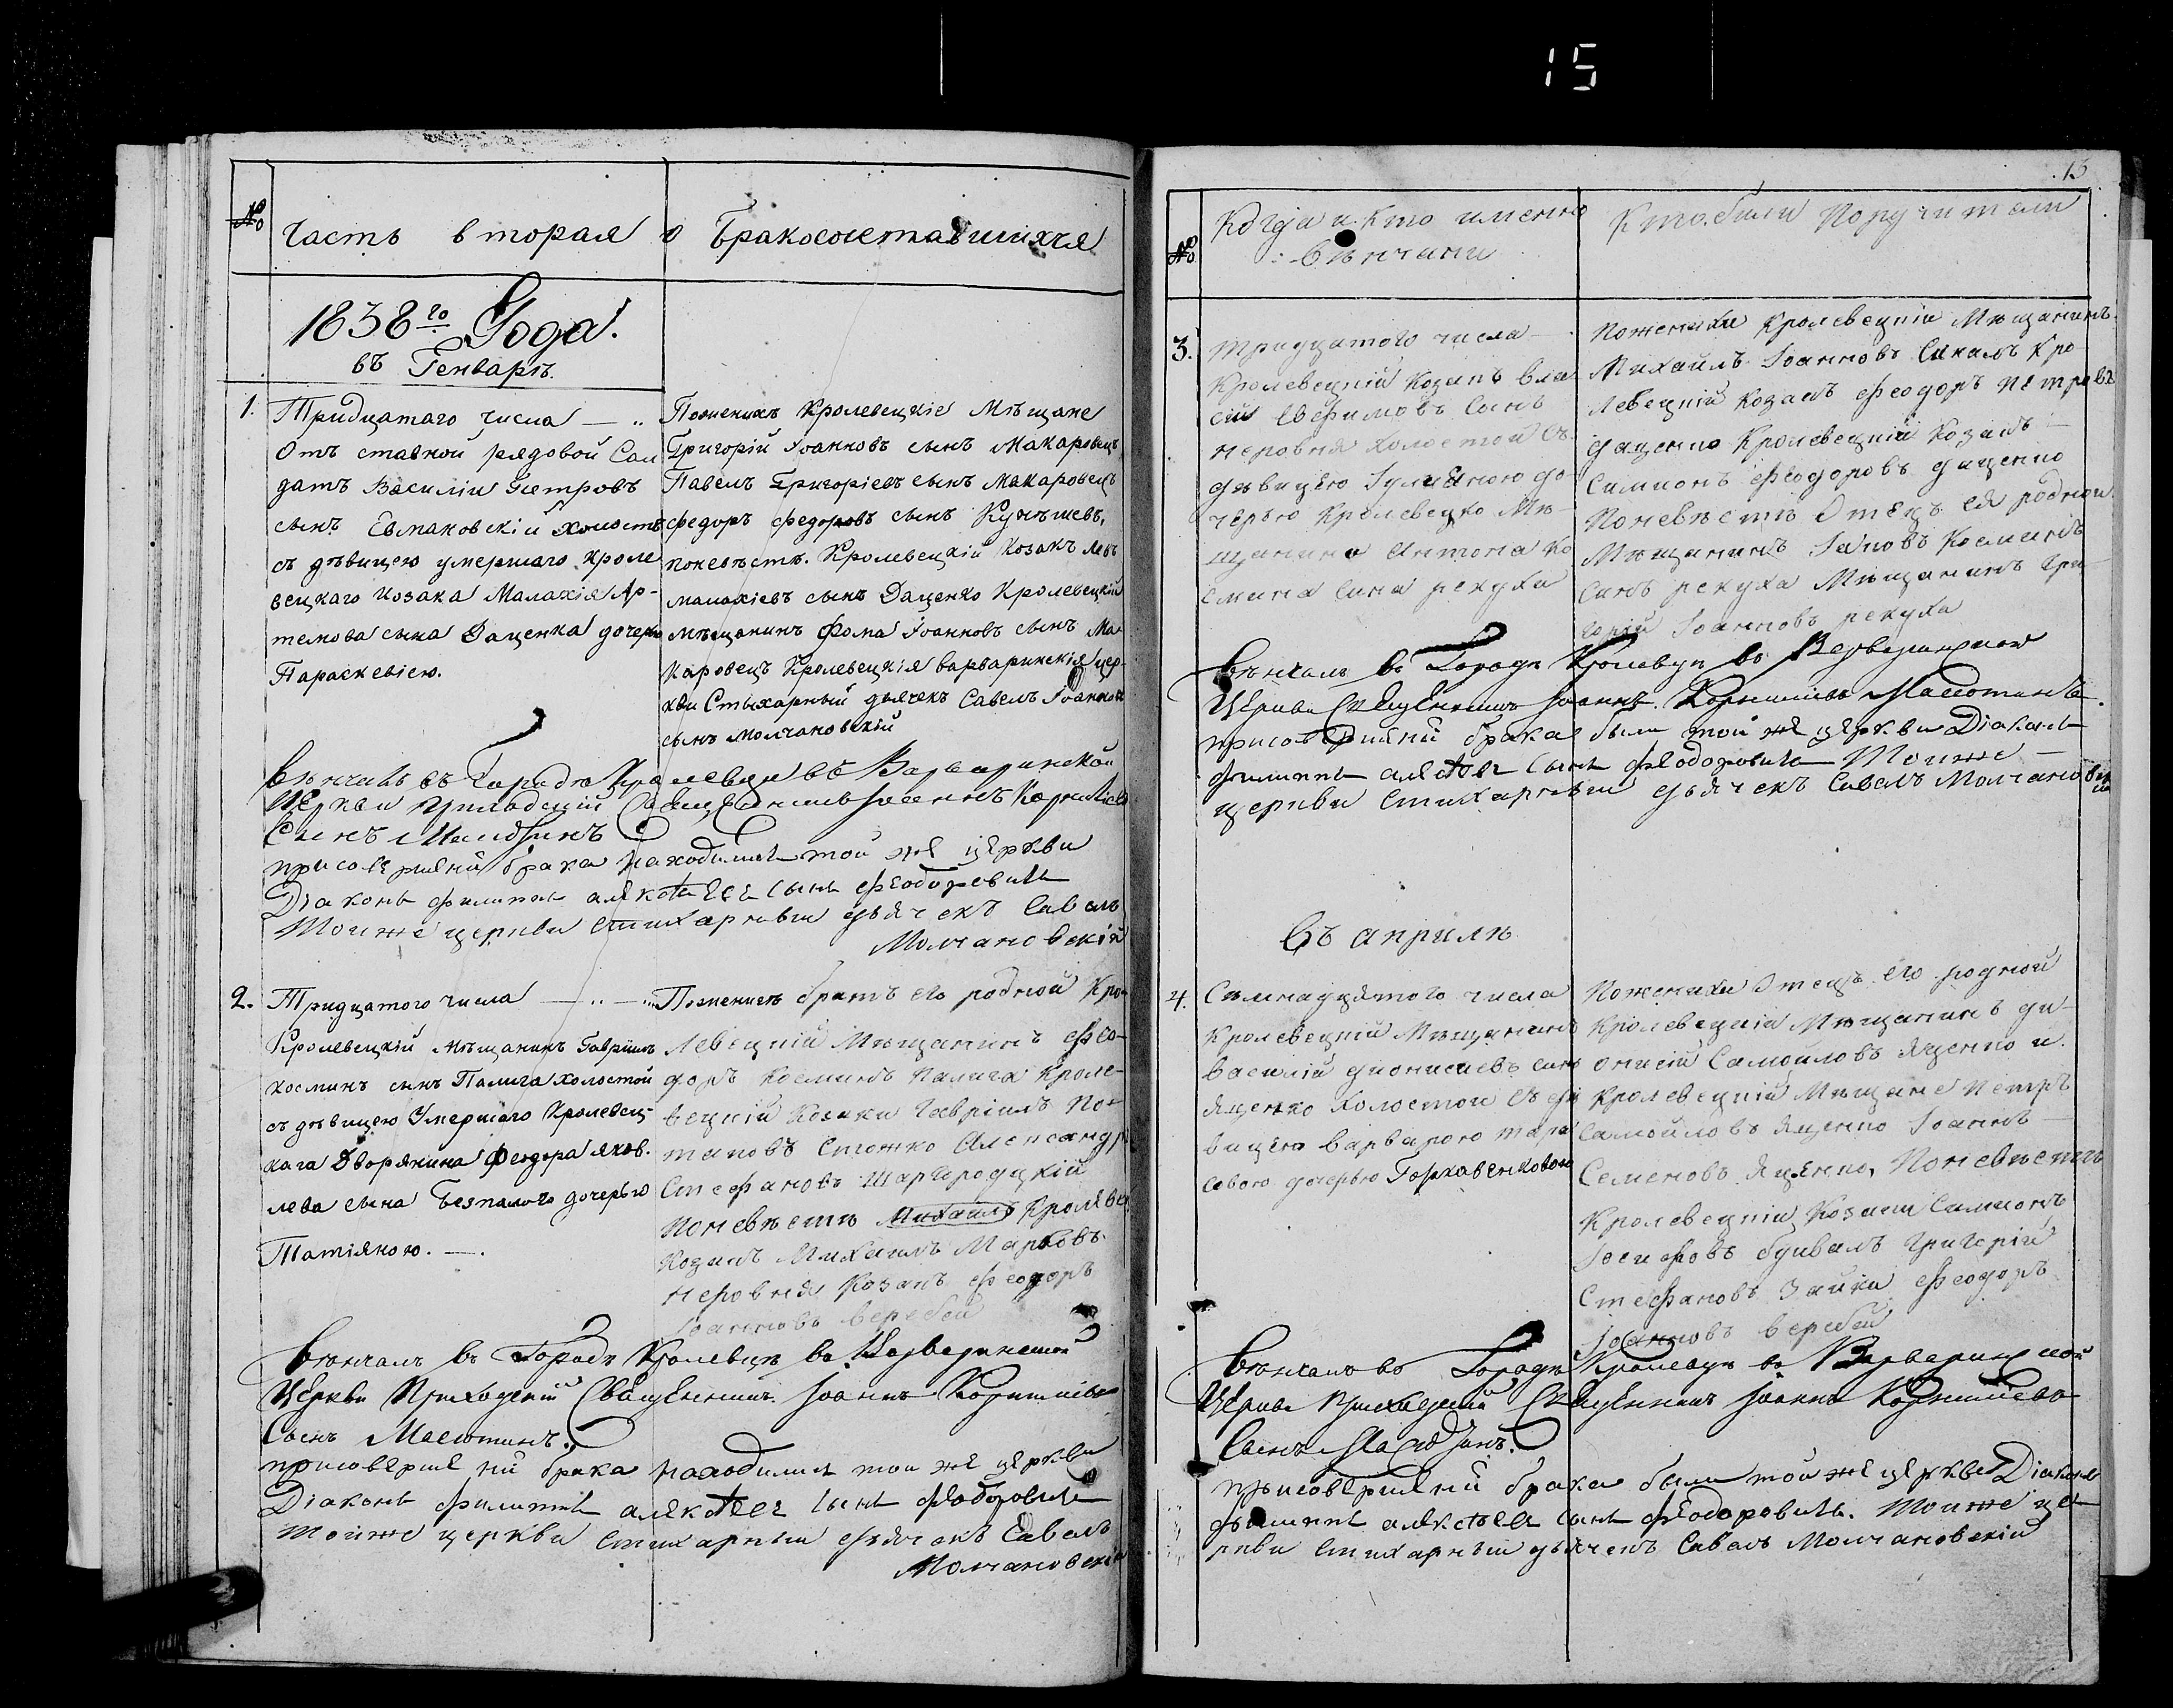 15
№
Часть вторая о Бракосочетавшихся
1838го Года.
въ Генваре.
1.
Тридцатаго числа
Отъ ставной рядовой Сал
датъ Василiй Петровъ
сынъ Евмановскiй холостъ
съ девицею умершаго кроле
вецкаго козака Малахiя Ар-
темова сына Даценка дочерю
Параскевiею.
Поженихе Кролевецкiе Мещане
Григорiй Iоанновъ сынъ Макаровецъ
Павелъ Григорiевъ сынъ Макаровецъ
федоръ федоровъ сынъ Кунъшевъ,
поневесте. Кролевецкiй Козакъ Левъ
малахiевъ сынъ Даценко Кролевецкiй
мещанинъ Фома Iоанновъ сынъ Ма-
каровецъ Кролевецкiя варваринскiя цер-
кви Стихарный дьячекъ Савелъ Iоанновъ
сынъ молчановскiй
Венчалъ въ Городе Кролевце въ Варваринской
Церкви Приходскiй Священникъ Iоаннъ Корнилiевъ
Сынъ Масютинъ
присовершенiи брака находились той же церкви
Дiаконъ филиппъ алексеевъ сынъ феодоровичъ
Тоиже церкви стихарный дьячекъ Савелъ
Молчановскiй
2.
Тридцатого числа
Кролевецкiй мещанинъ Гаврiилъ
косминъ сынъ Палига холостой
съ девицею Умершаго Кролевец-
кага Дворянина Феодора яков.
лева сына Безпалого дочерью
Татiяною.
Поженихе братъ его родной Кро-
левецкiй Мещанинъ Фео-
доръ косминъ Палига Кроле-
вецкiй козаки Гаврiилъ По-
таповъ Стожко Александръ
Стефановъ Шаргородцкiй
Поневесте Михаилъ Кролевец
козакъ Михаилъ Марковъ
Неровня козакъ Феодоръ
Iоанновъ веребей
Венчалъ въ Городе Кролевце въ Варваринской
Церкви Приходскiй Священникъ Iоаннъ Корнилiевъ
Сынъ Масютинъ
присовершенiи брака находились той же церкви
Дiаконъ филиппъ алексеевъ сынъ феодоровичъ
тоиже церкви стихарный дьячекъ Савелъ
Молчановскiй
13
№
Когда и кто именно
венчани
Кто били Поручители
3.
тридцатого числа
кролевецкiй козакъ вла
сiй Евфимовъ сынъ
неровня холостой съ
девицею Iулиaною до
черью Кролевецко Ме-
щанина Антона ко
смина сина рекуха
Поженихи Кролевецкiи Мещанинъ
Михайлъ Iоанновъ Сикалъ Кро-
левецкiй козакъ феодоръ петровъ
даценко Кролевецкiй козакъ
Симионъ феодоровъ даценко
Поневесте Отецъ ея родной
Мещанинъ Косминъ
синъ рекуха Мещанинъ гри-
горiй Iоанновъ рекуха
Венчалъ въ Городе Кролевце въ Варваринской
Церкви Священникъ Iоаннъ Корнилiевъ Масютинъ
присовершенiи брака были той же церкви Дiаконъ
филиппъ алексеевъ сынъ феодоровичъ Тоиже
церкви стихарный дьячекъ Савелъ Молчановскiй
Въ априле
4.
Семнадцятого числа
кролевецкiй Мещанинъ
василiй дионисиевъ синъ
яценко холостой съ де
вицею варварою тара
совою дочерью Горковенковою
Поженихи Отецъ его родной
кролевецкiй Мещанинъ ди-
онисiй Самойловъ яценко и
кролевецкiй Мещане Петръ
Самойловъ яценко Iоаннъ
Семеновъ яценко, Поневесте
кролевецкiй козаки Симионъ
Iосифовъ Григорiй
Стефановъ Зайка феодоръ
Iоанновъ веребей
Венчалъ въ Городе Кролевце въ Варваринской
Церкви Приходскiй Священникъ Iоаннъ Корнилiевъ
Сынъ Масютинъ.
присовершенiи брака были той же церкви Дiаконъ
филиппъ алексеевъ сынъ феодоровичъ. Тоиже це-
ркви стихарный дьячекъ Савелъ Молчановскiй